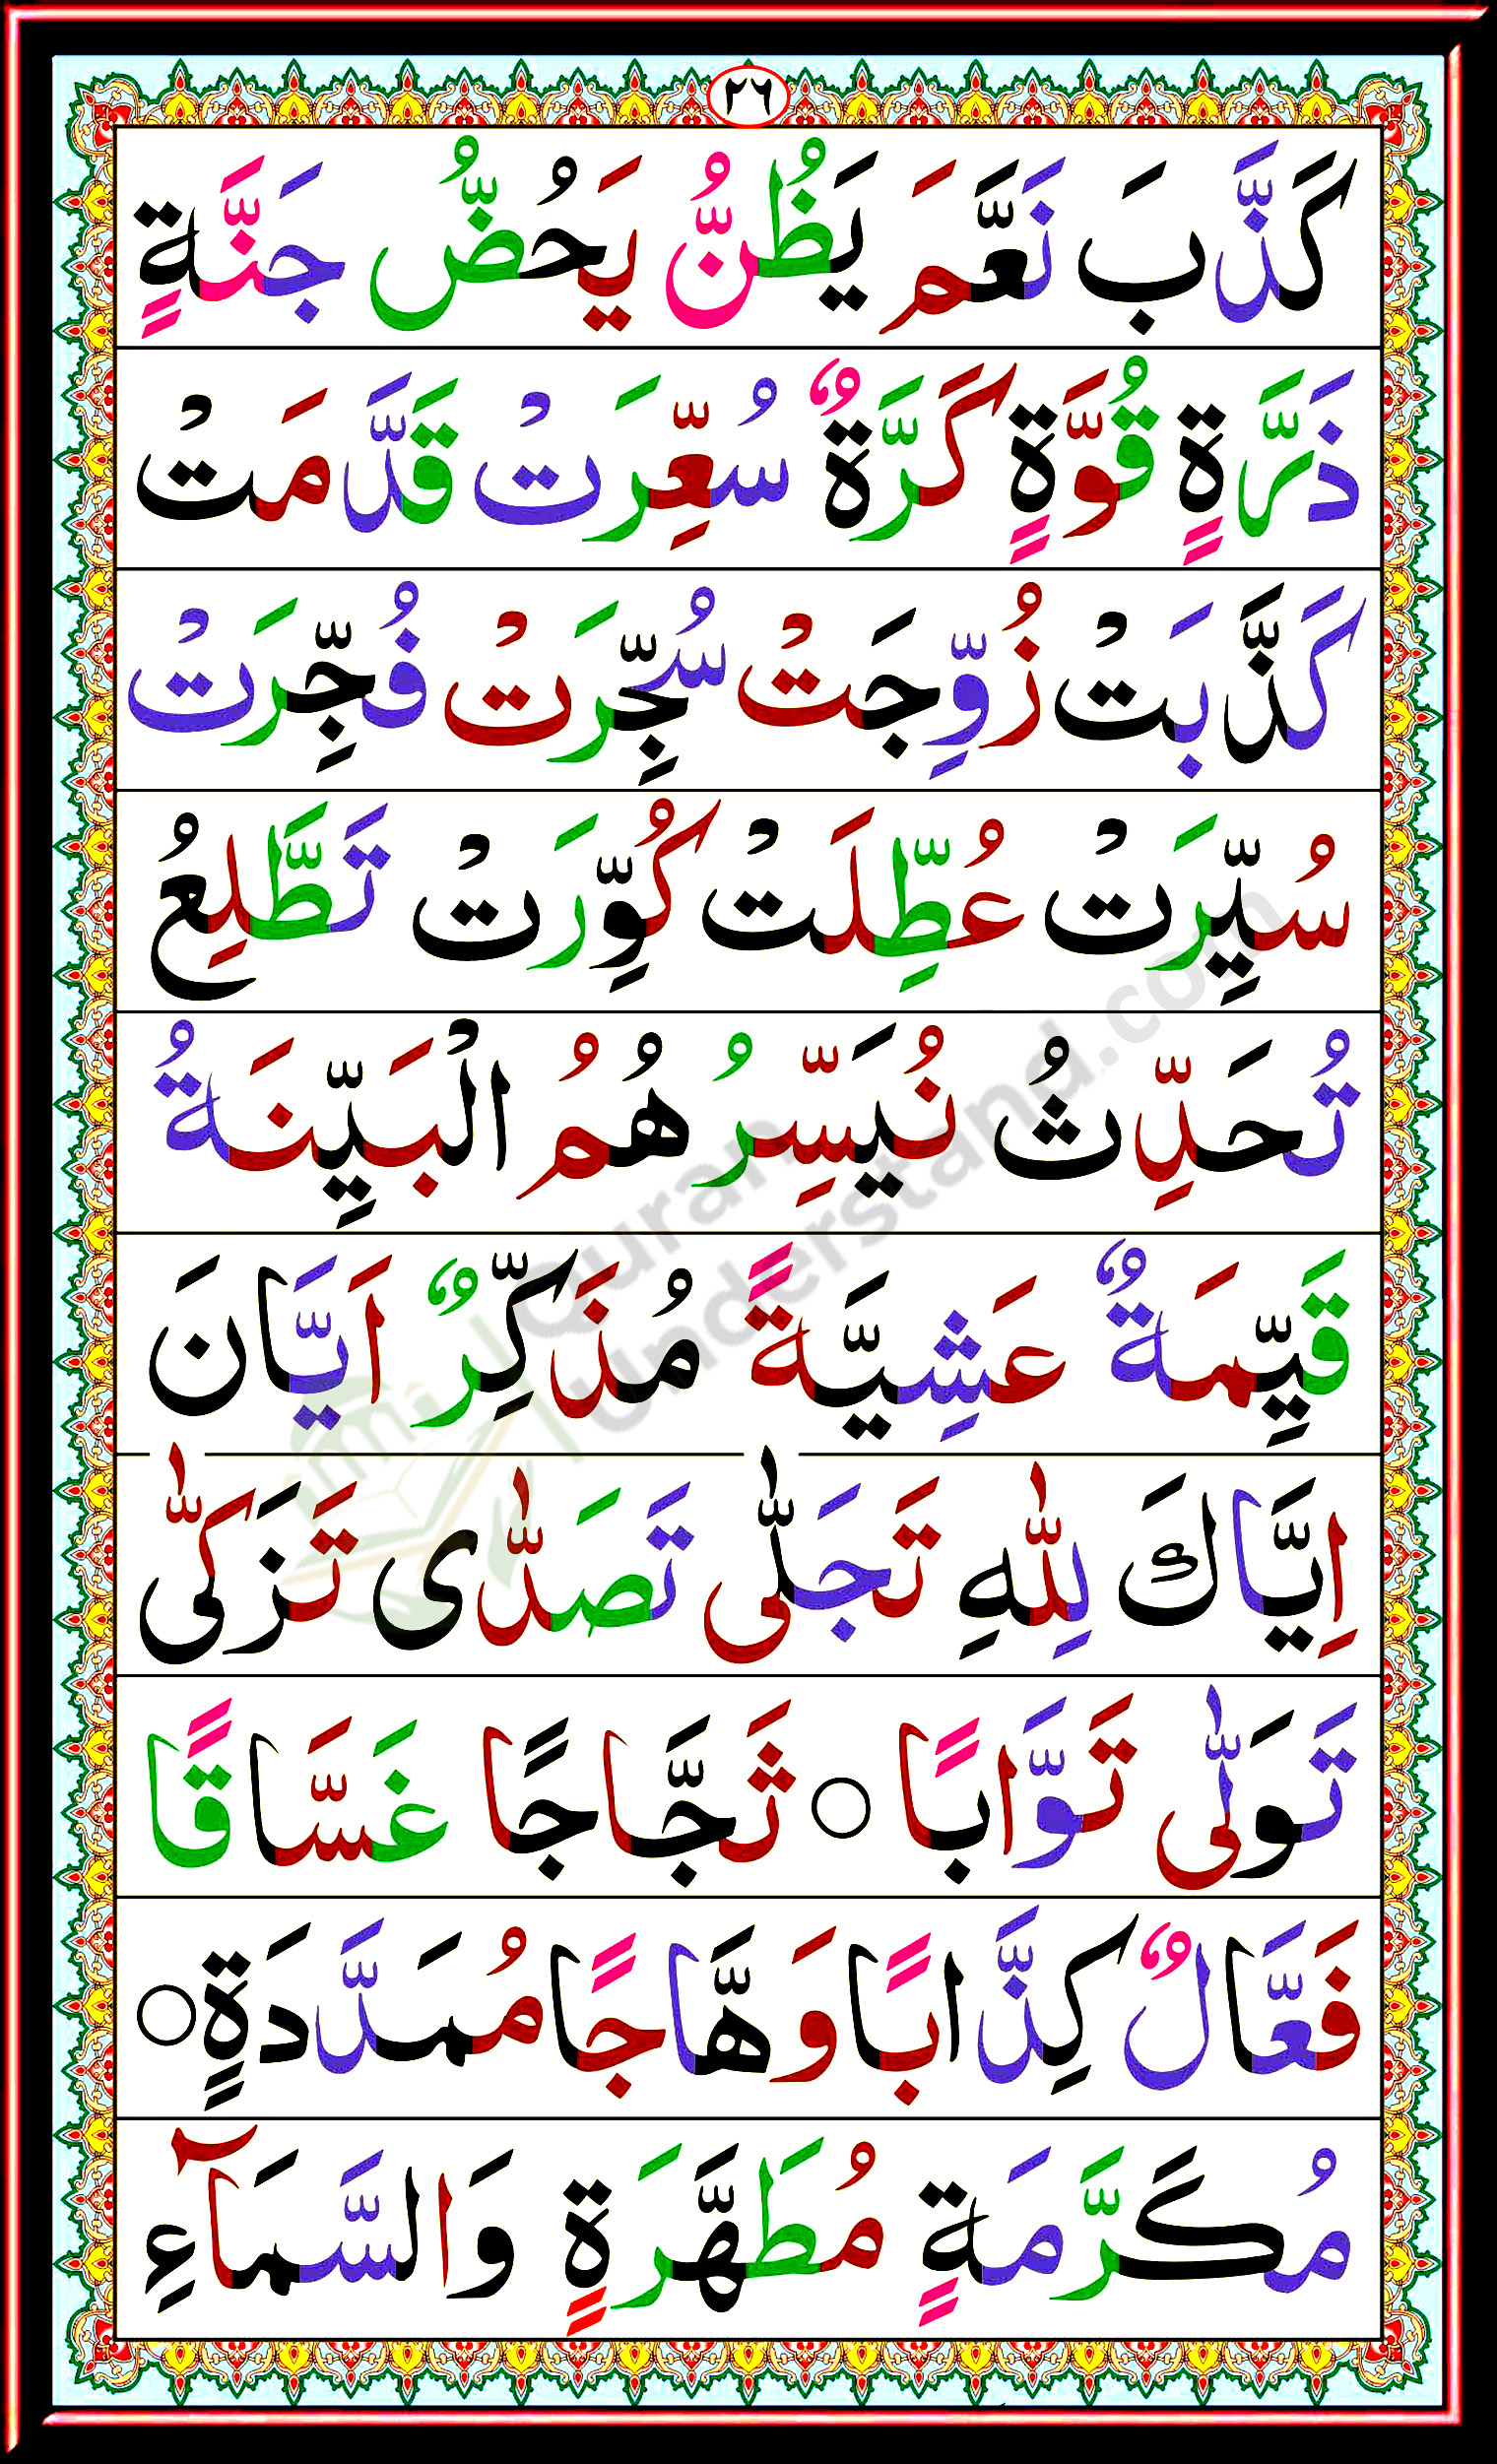 ٢٦
كَذَّبَ نَعَّمَ يَظُنُّ يَحُضُّ جَنَّةٍ
ذَرَّةٍ قُوَّةٍ كَرَّةٌ سُعِّرَتْ قَدَّمَتْ
كَذَّبَتْ زُوِّجَتْ سُجِّرَتْ فُجِّرَتْ
سُيِّرَتْ عُطِّلَتْ كُوِّرَتْ تَطَّلِعُ
تُحَدِّثُ نُيَسِّرُ هُمُ الْبَيِّنَةُ
قَيِّمَةٌ عَشِيَّةً مُذَكِّرٌ اَيَّانَ
اِيَّاكَ لِلّٰهِ تَجَلّٰى تَصَدّٰى تَزَكّٰى
تَوَلّٰى تَوَّابًا ○ ثَجَّاجًا غَسَّاقًا
فَعَّالٌ كِذَّابًا وَهَّاجًا مُمَدَّدَةٍ ○
مُكَرَّمَةٍ مُطَهَّرَةٍ وَالسَّمَآءِ
Quran
Understand.com